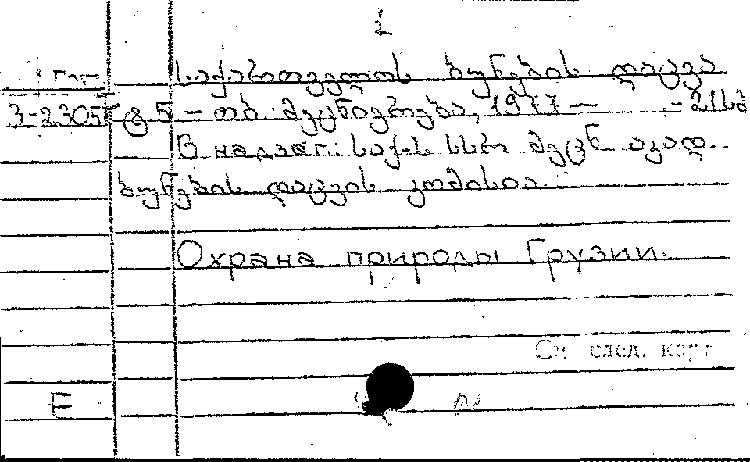 1
საქართველოს ბუნების დაცვა
3-2305 ტ. 5 – თბ: მეცნიერება, 1977 – – 21სმ
В надзаг: საქ. სსრ მეცნ. აკად.
ბუნების დაცვის კომისია.
Охрана природы Грузии.
См. след. карт.
Е